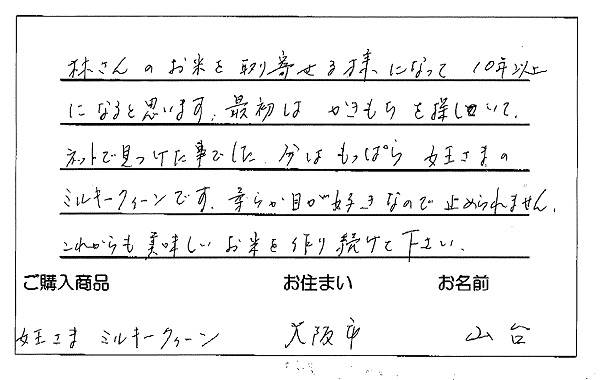 林さんのお米を取り寄せる様になって10年以上
になると思います。最初は かきもちを探していて、
ネットで見つけた事でした。今は もっぱら 女王さまの
ミルキークィーンです。柔らか目が好きなので 止められません。
これからも 美味しい お米を 作り続けて下さい。
ご購入商品 お住まい お名前
女王さま ミルキークィーン 大阪市 山台